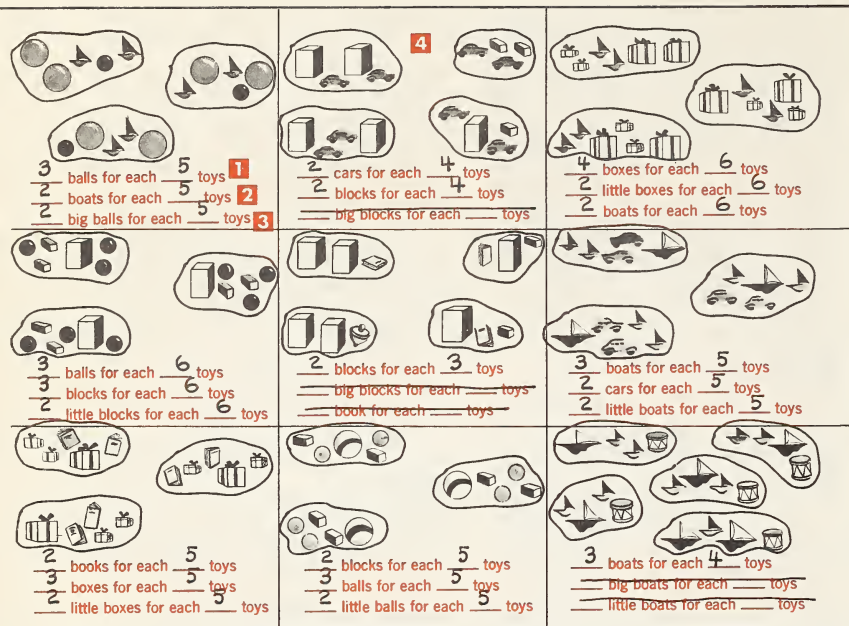 3 balls for each 5 toys 1
2 boats for each 5 toys 2
2 big balls for each 5 toys 3
4
2 cars for each 4 toys
2 blocks for each 4 toys
big blocks for each toys
4 boxes for each 6 toys
2 little boxes for each 6 toys
2 boats for each 6 toys
3 balls for each 6 toys
3 blocks for each 6 toys
2 little blocks for each 6 toys
2 blocks for each 3 toys
big blocks for each toys
book for each toys
3 boats for each 5 toys
2 cars for each 5 toys
2 little boats for each 5 toys
2 books for each 5 toys
3 boxes for each 5 toys
2 little boxes for each 5 toys
2 blocks for each 5 toys
3 balls for each 5 toys
2 little balls for each 5 toys
3 boats for each 4 toys
big boats for each toys
little boats for each toys